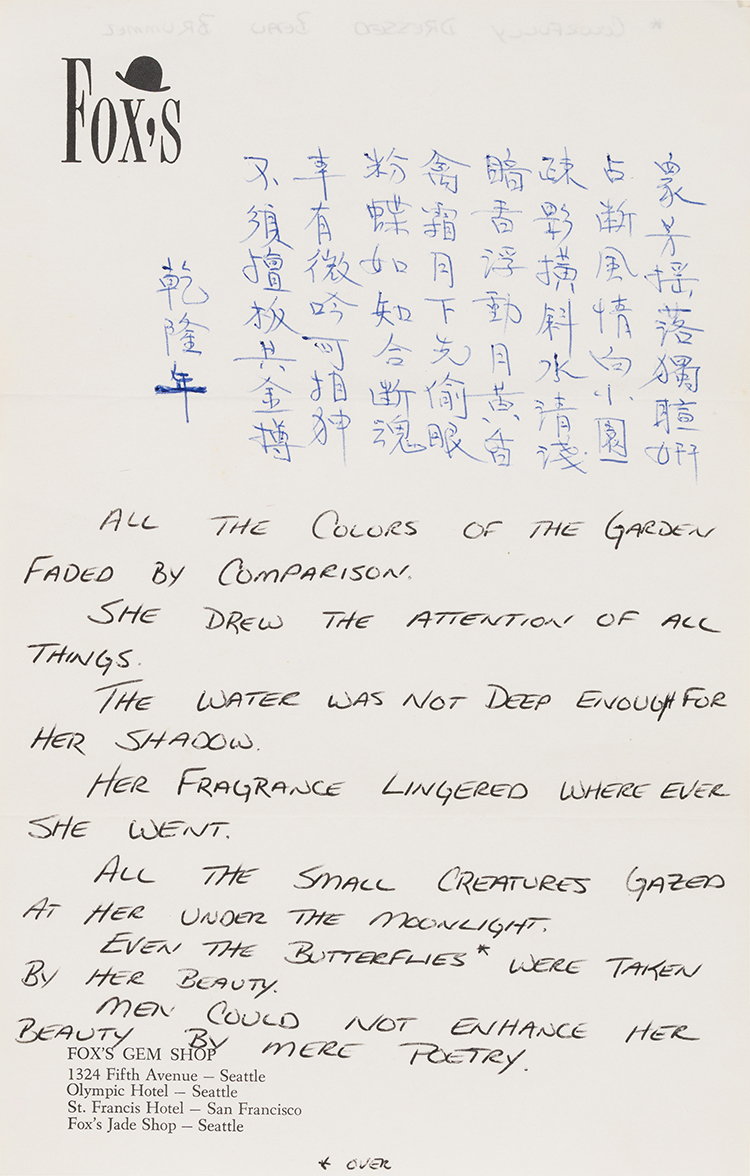 * CAREFULLY DRESSED BEAU BRUMMEL
FOX'S
眾芳搖落獨暄妍
占斷風情向小園
疎影橫斜水清淺
暗香浮動月黃昏
禽霜月下先偷眼
粉蝶如知合斷魂
幸有微吟可相狎
不須檀板共金樽
乾隆年
ALL THE COLORS OF THE GARDEN
FADED BY COMPARISON.
SHE DREW THE ATTENTION OF ALL
THINGS.
THE WATER WAS NOT DEEP ENOUGH FOR
HER SHADOW.
HER FRAGRANCE LINGERED WHERE EVER
SHE WENT.
ALL THE SMALL CREATURES GAZED
AT HER UNDER THE MOONLIGHT.
EVEN THE BUTTERFLIES* WERE TAKEN
BY HER BEAUTY.
MEN COULD NOT ENHANCE HER
BEAUTY BY MERE POETRY.
FOX'S GEM SHOP
1324 Fifth Avenue – Seattle
Olympic Hotel – Seattle
St. Francis Hotel – San Francisco
Fox's Jade Shop – Seattle
* OVER